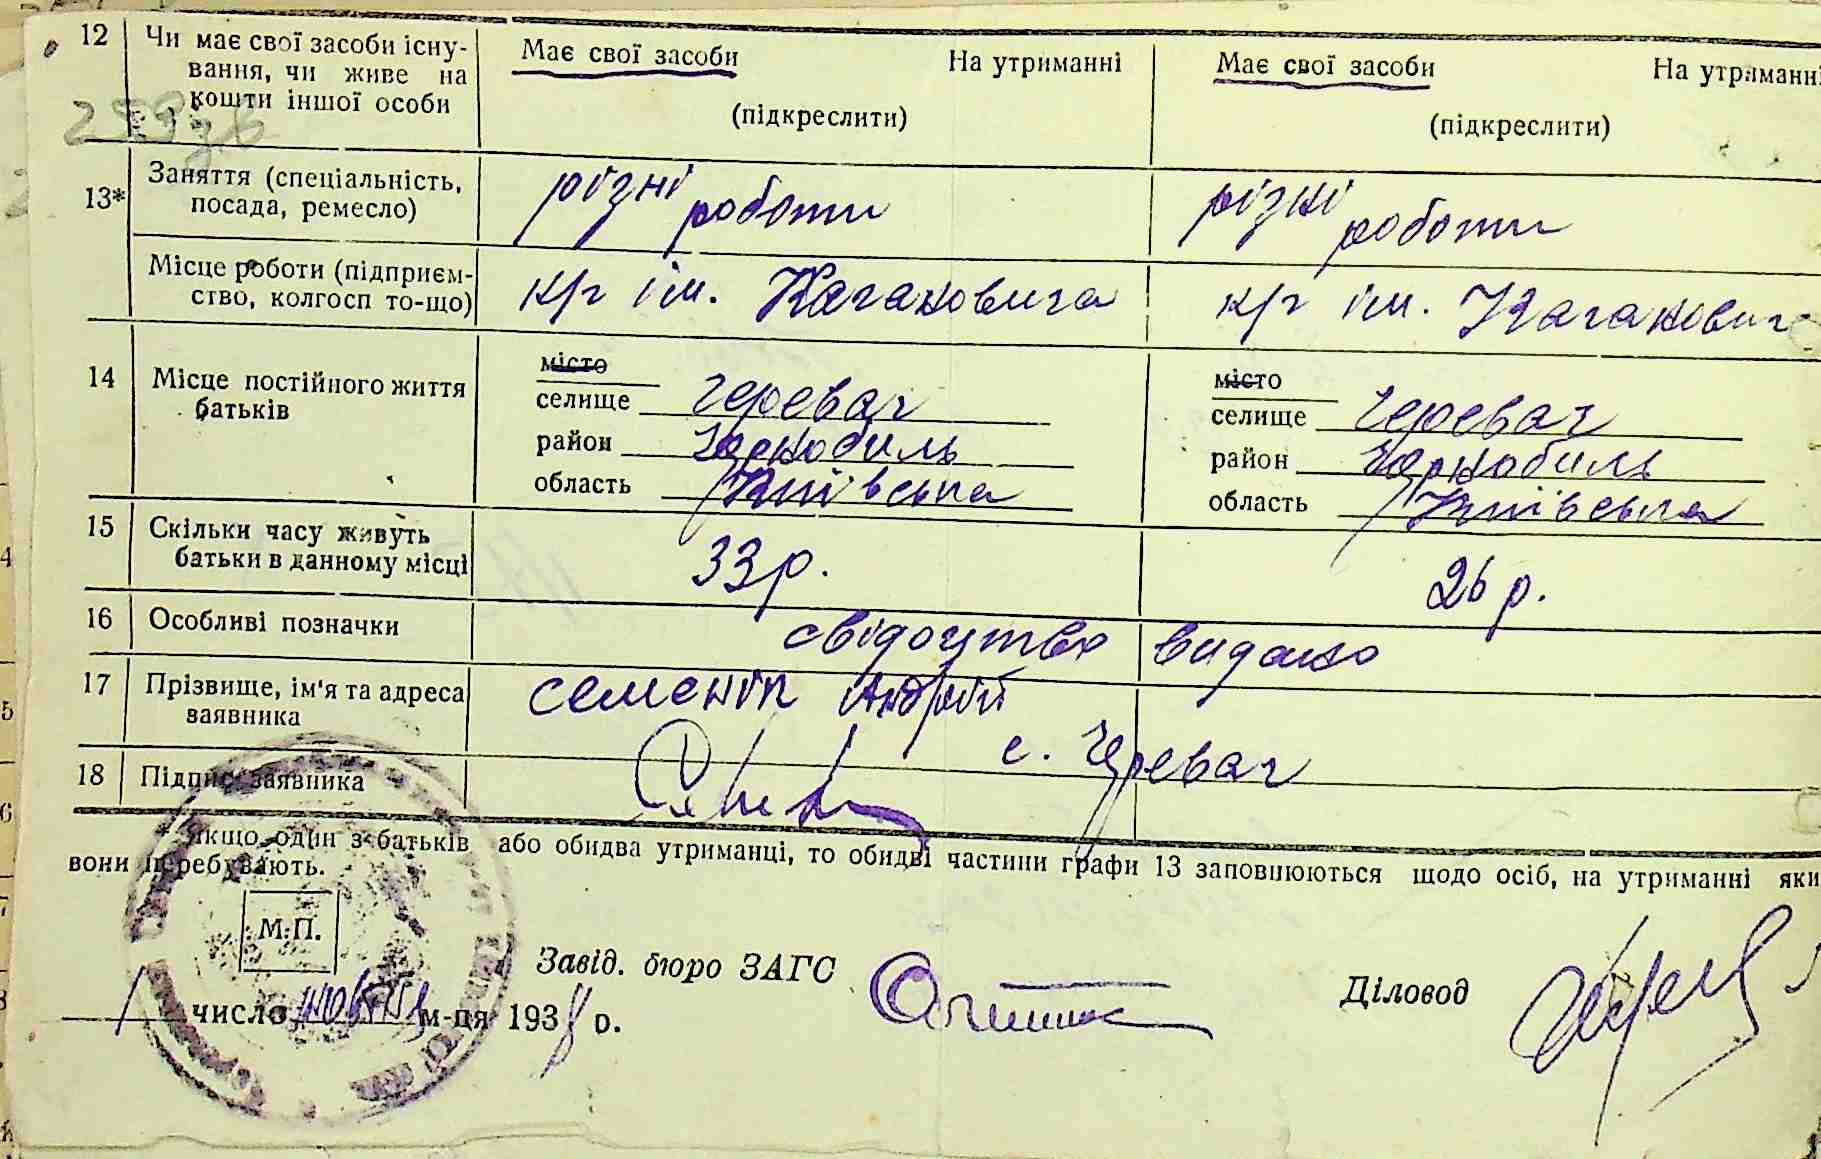 12 Чи має свої засоби існу- Має свої засоби На утриманні Має свої засоби На утриманні
вання, чи живе на
кошти іншої особи (підкреслити) (підкреслити)
13* Заняття (спеціальність, різні роботи різні роботи
посада, ремесло)
Місце роботи (підприєм- к/г ім. Кагановича к/г ім. Кагановича
ство, колгосп то-що)
14 Місце постійного життя місто місто
батьків селище Черевач селище Черевач
район Чорнобиль район Чорнобиль
область Київська область Київська
15 Скільки часу живуть 33 р. 26 р.
батьки в данному місці
16 Особливі позначки свідоцтво видано
17 Прізвище, ім'я та адреса Семенік Андрій
заявника с. Черевач
18 Підпис заявника
* Якщо один з батьків або обидва утриманці, то обидві частини графи 13 заповнюються щодо осіб, на утриманні яки
вони перебувають.
М.П.
Завід. бюро ЗАГС Діловод
1 число жовтня м-ця 1938 р.